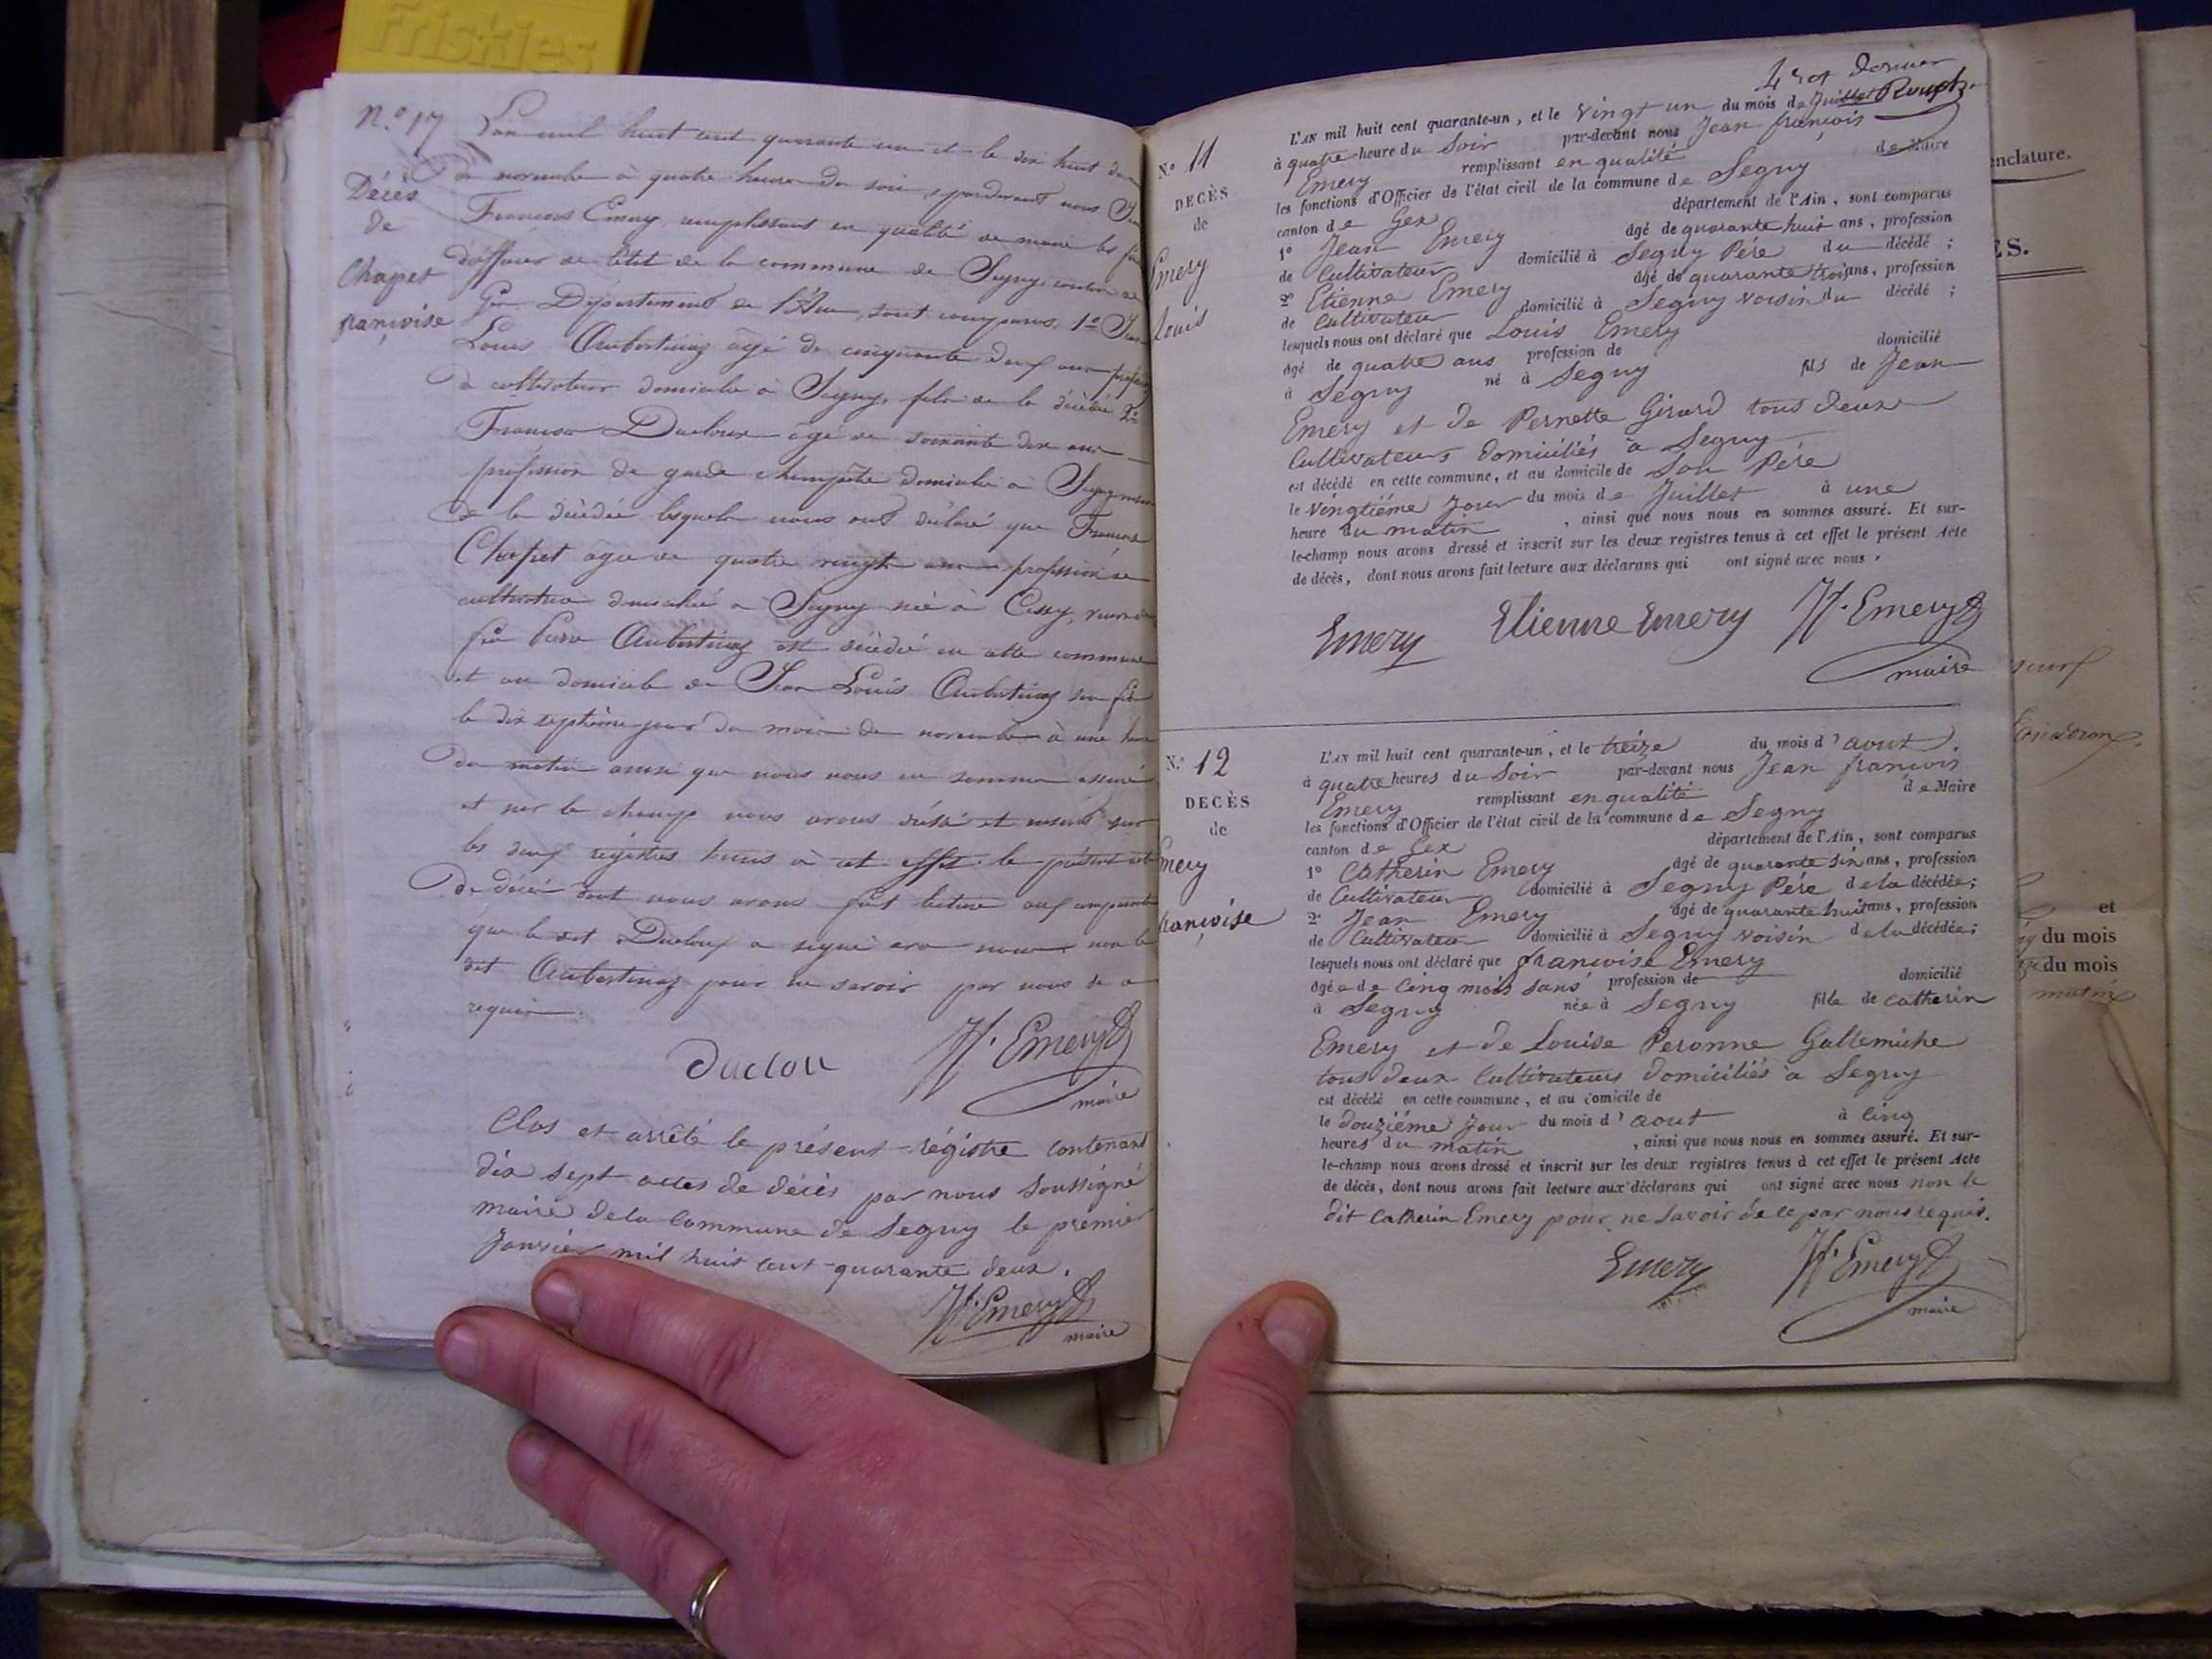 friskies
N.º 17
Décès
de
Chapet
françoise
L'an mil huit cent quarante un et le dix huit du
de novembre à quatre heures du soir, pardevant nous Jean
François Emery remplissant en qualité de maire les
d'officier de l'état de la commune de Segny, canton de
Gex Département de l'Ain, sont comparus, 1º Jean
Louis Aubertinaz âgé de cinquante deux ans profession
de cultivateur domicilié à Segny, fils de la décédée 2º
François Ducloux âgé de soixante dix ans
profession de garde champêtre domicilié à Segny voisin
de la décédée lesquels nous ont déclaré que Françoise
Chapet âgée de quatre vingt ans profession de
cultivatrice domiciliée à Segny née à Cessy, veuve de
feu Aubertinaz est décédée en cette commune
et au domicile de Jean Louis Aubertinaz son fils
le dix septième jour du mois de novembre à une heure
du matin ainsi que nous nous en sommes assuré
et sur le champ nous avons dressé et inscrit sur
les deux registres tenus à cet effet le présent acte
de décès dont nous avons fait lecture aux comparants
que le dit Ducloux a signé avec nous non le
dit Aubertinaz pour ne savoir par nous de ce
requis.
Duclou
Jf. Emery
maire
Clos et arrêté le présent régistre contenant
dix sept actes de décès par nous soussigné
maire de la Commune de Segny le premier
Janvier mil huit cent quarante deux.
Jf. Emery
maire
4e et dernier
Rouph
N.º 11
DECÈS
de
Emery
Louis
L'AN mil huit cent quarante-un, et le vingt un du mois de Juillet
à quatre heure du Soir par-devant nous Jean françois
Emery remplissant en qualité de Maire
les fonctions d'Officier de l'état civil de la commune de Segny
canton de Gex département de l'Ain, sont comparus
1º Jean Emery âgé de quarante huit ans, profession
de Cultivateur domicilié à Segny Pére du décédé ;
2º Etienne Emery âgé de quarante trois ans, profession
de Cultivateur domicilié à Segny voisin du décédé ;
lesquels nous ont déclaré que Louis Emery
âgé de quatre ans profession de domicilié
à Segny né à Segny fils de Jean
Emery et de Pernette Girard tous deux
Cultivateurs domiciliés à Segny
est décédé en cette commune, et au domicile de Son Pére
le vingtiéme Jour du mois de Juillet à une
heure du matin , ainsi que nous nous en sommes assuré. Et sur-
le-champ nous avons dressé et inscrit sur les deux registres tenus à cet effet le présent Acte
de décès, dont nous avons fait lecture aux déclarans qui ont signé avec nous .
Emery Etienne Emery Jf. Emery
maire
N.º 12
DECÈS
de
mery
rançoise
L'AN mil huit cent quarante-un, et le treize du mois d' aout .
à quatre heures du Soir par-devant nous Jean françois
Emery remplissant en qualité de Maire
les fonctions d'Officier de l'état civil de la commune de Segny
canton de Gex département de l'Ain, sont comparus
1º Catherin Emery âgé de quarante six ans, profession
de Cultivateur domicilié à Segny Pére de la décédée;
2º Jean Emery âgé de quarante huit ans, profession
de Cultivateur domicilié à Segny voisin de la décédée;
lesquels nous ont déclaré que françoise Emery
âgée de Cinq mois sans profession de domicilié
à Segny née à Segny fille de Catherin
Emery et de Louise Peronne Gallemiche
tous deux Cultivateurs domiciliés à Segny
est décédé en cette commune, et au domicile de
le douziéme Jour du mois d' aout à Cinq
heures du matin , ainsi que nous nous en sommes assuré. Et sur-
le-champ nous avons dressé et inscrit sur les deux registres tenus à cet effet le présent Acte
de décès, dont nous avons fait lecture aux déclarans qui ont signé avec nous non le
dit Catherin Emery pour ne Savoir de ce par nous requis.
Emery Jf. Emery
maire
enclature.
ES.
et
du mois
du mois
matin